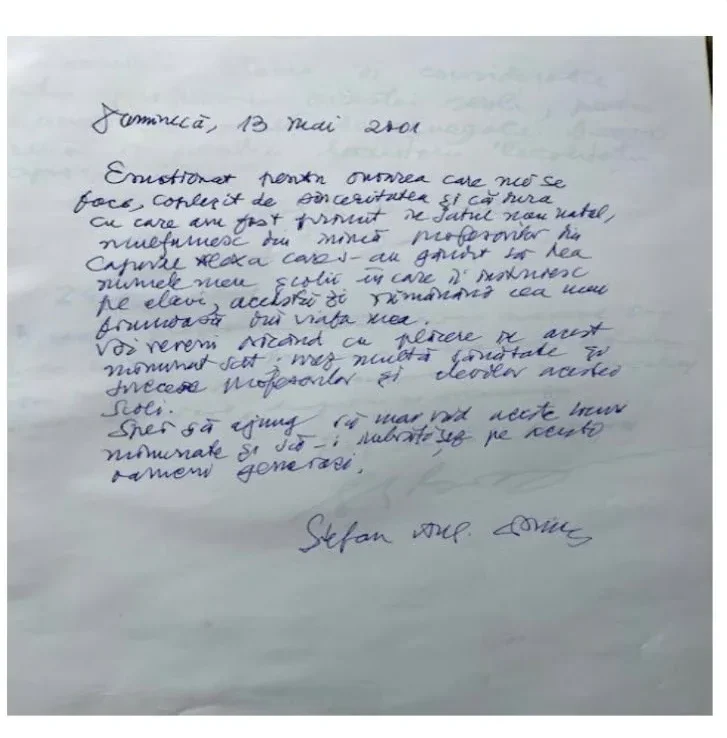 Duminică, 13 mai 2001
Emoționat pentru onoarea care mi se
face, copleșit de sinceritatea și căldura
cu care am fost primit în satul meu natal,
mulțumesc din inimă profesorilor din
Capu lui Alexa care s-au gândit să dea
numele meu școlii în care îi instruiesc
pe elevi, această zi rămânând cea mai
frumoasă din viața mea.
Voi reveni oricând cu plăcere în acest
minunat sat; urez multă sănătate și
succese profesorilor și elevilor acestei
școli.
Sper să ajung să mai văd aceste locuri
minunate și să-i îmbrățișez pe acești
oameni generoși.
Ștefan Aug.